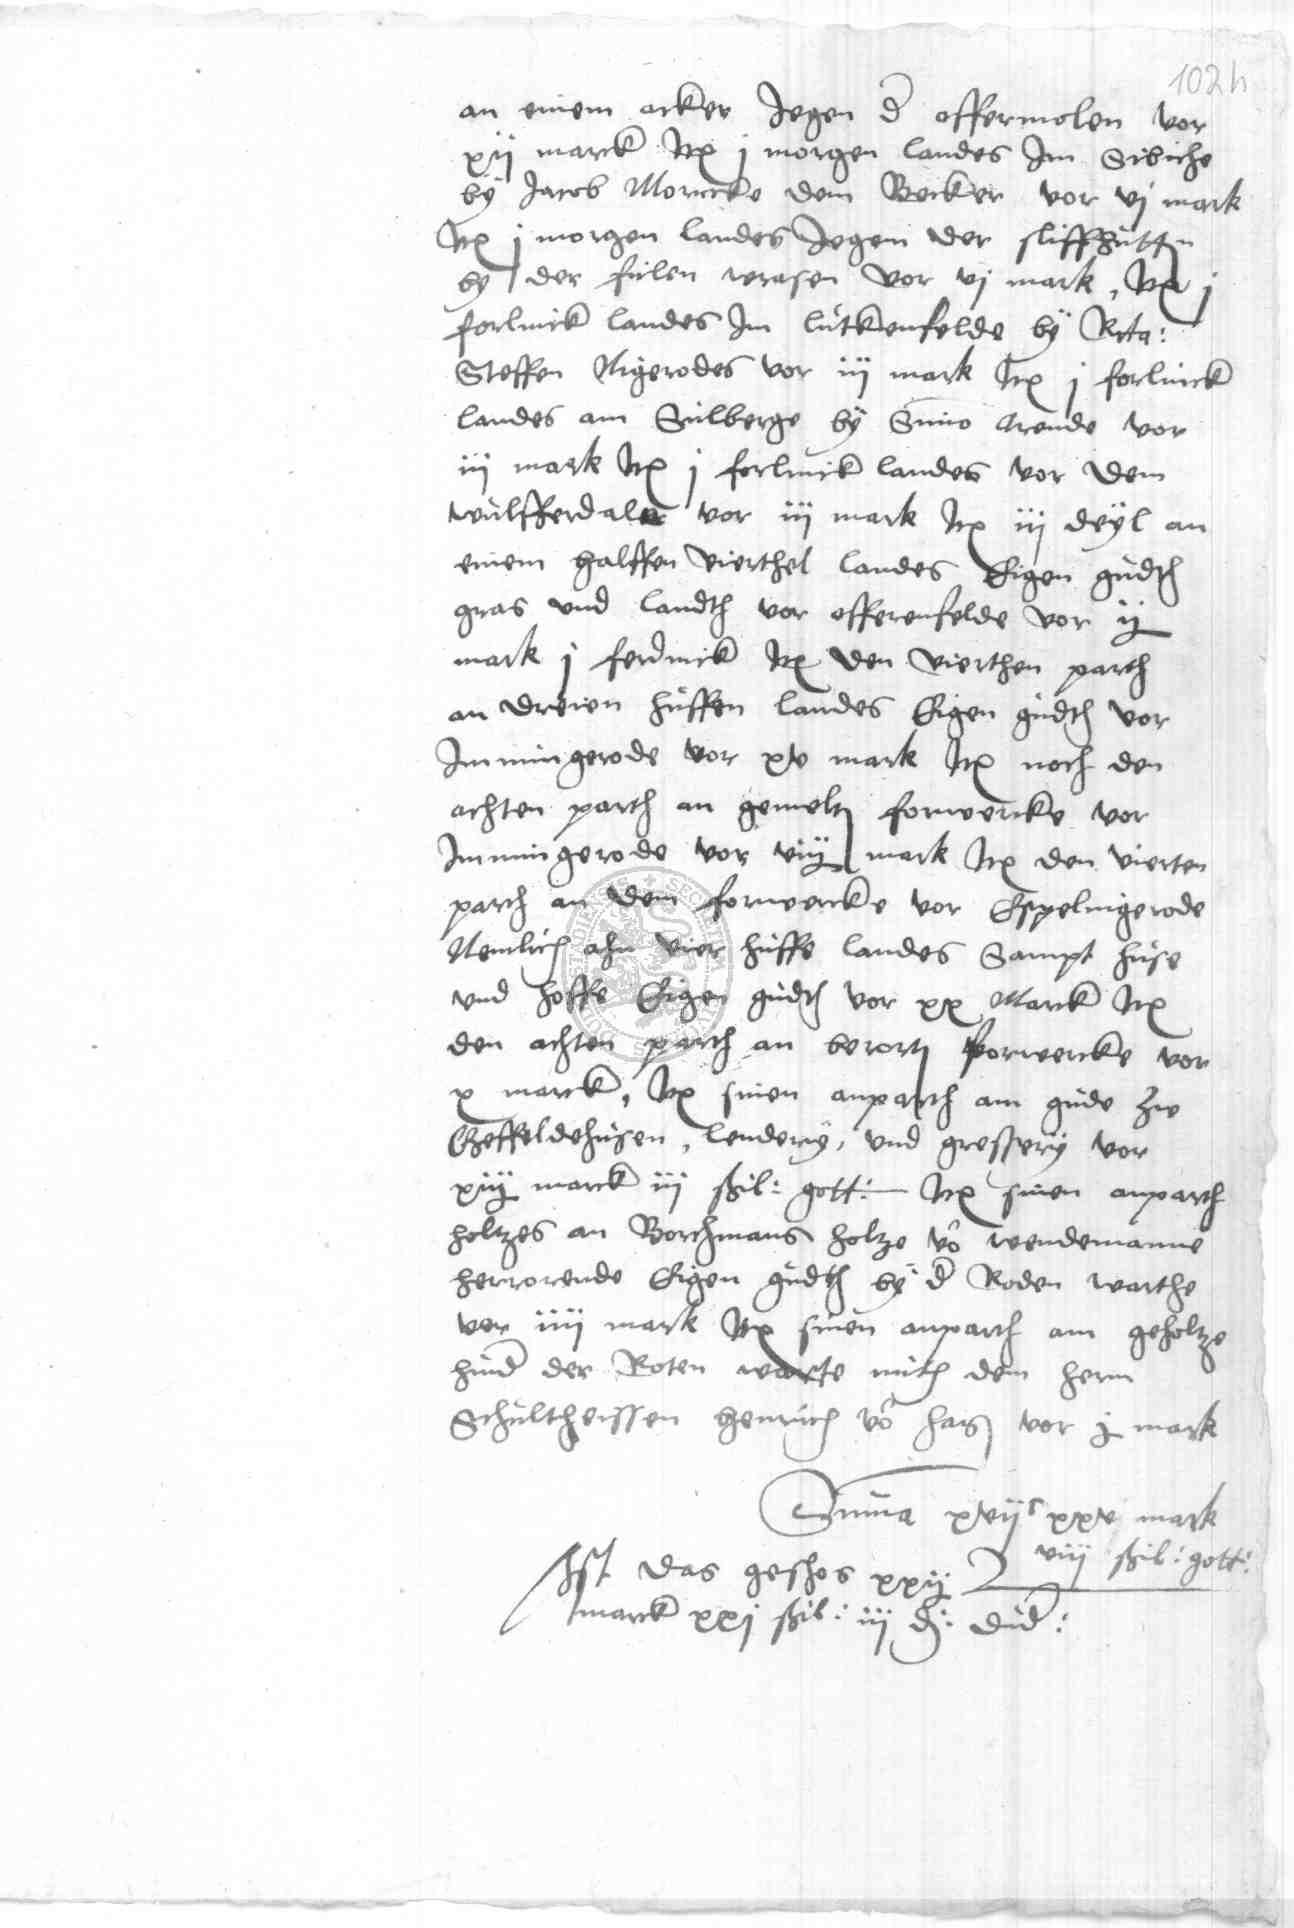 102 h
an einem acker Jegen d offermolen vor
xij marck Itx j morgen landes Im Sibiche
by Jacob Moricke dem Becker vor vj mark
Itx j morgen landes Jegen der sliffhutten
by der fulen wrasen vor vj mark, Itx j
forlinck landes Im lutkenfelde by Rcta:
Steffen Nigerodes vor iij mark Itx j forlinck
landes am Sulberge by Simo Arende vor
iij mark Itx j forlinck landes vor dem
wulfferdaler vor iij mark Itx iij deÿl an
einem halffen vierthel landes Eigen gudth
gras vnd landth vor offerenfelde vor ij
mark j ferdinck Itx den vierthen parth
an dreien huffen landes Eigen gudth vor
Immingerode vor xv mark Itx noch den
achten parth an gemelt forwercke vor
Immingerode vor viij mark Itx den vierten
parth an dem forwercke vor Espelingerode
Nemlich ahn vier huffe landes Sampt huse
vnd hoffe Eigen gudth vor xx Marck Itx
den achten parth an berort forwercke vor
x marck, Itx sinen anparth am gude zw
Geffeldehusen, lendery, vnd gressery vor
xiij marck iij shil: gott: Itx sinen anparth
holtzes an Borchmans holtze vo wendemanne
herrorende Eigen gudth by d Roden warthe
vor iiij mark Itx sinen anparth am geholtze
hind der Roten warte mith dem hern
Schultheissen Henrich vo hag vor j mark
Suma xvij c xxv mark
viij shil: gott:
Ist das geschos xxij
marck xxj shil: iij d: dud: